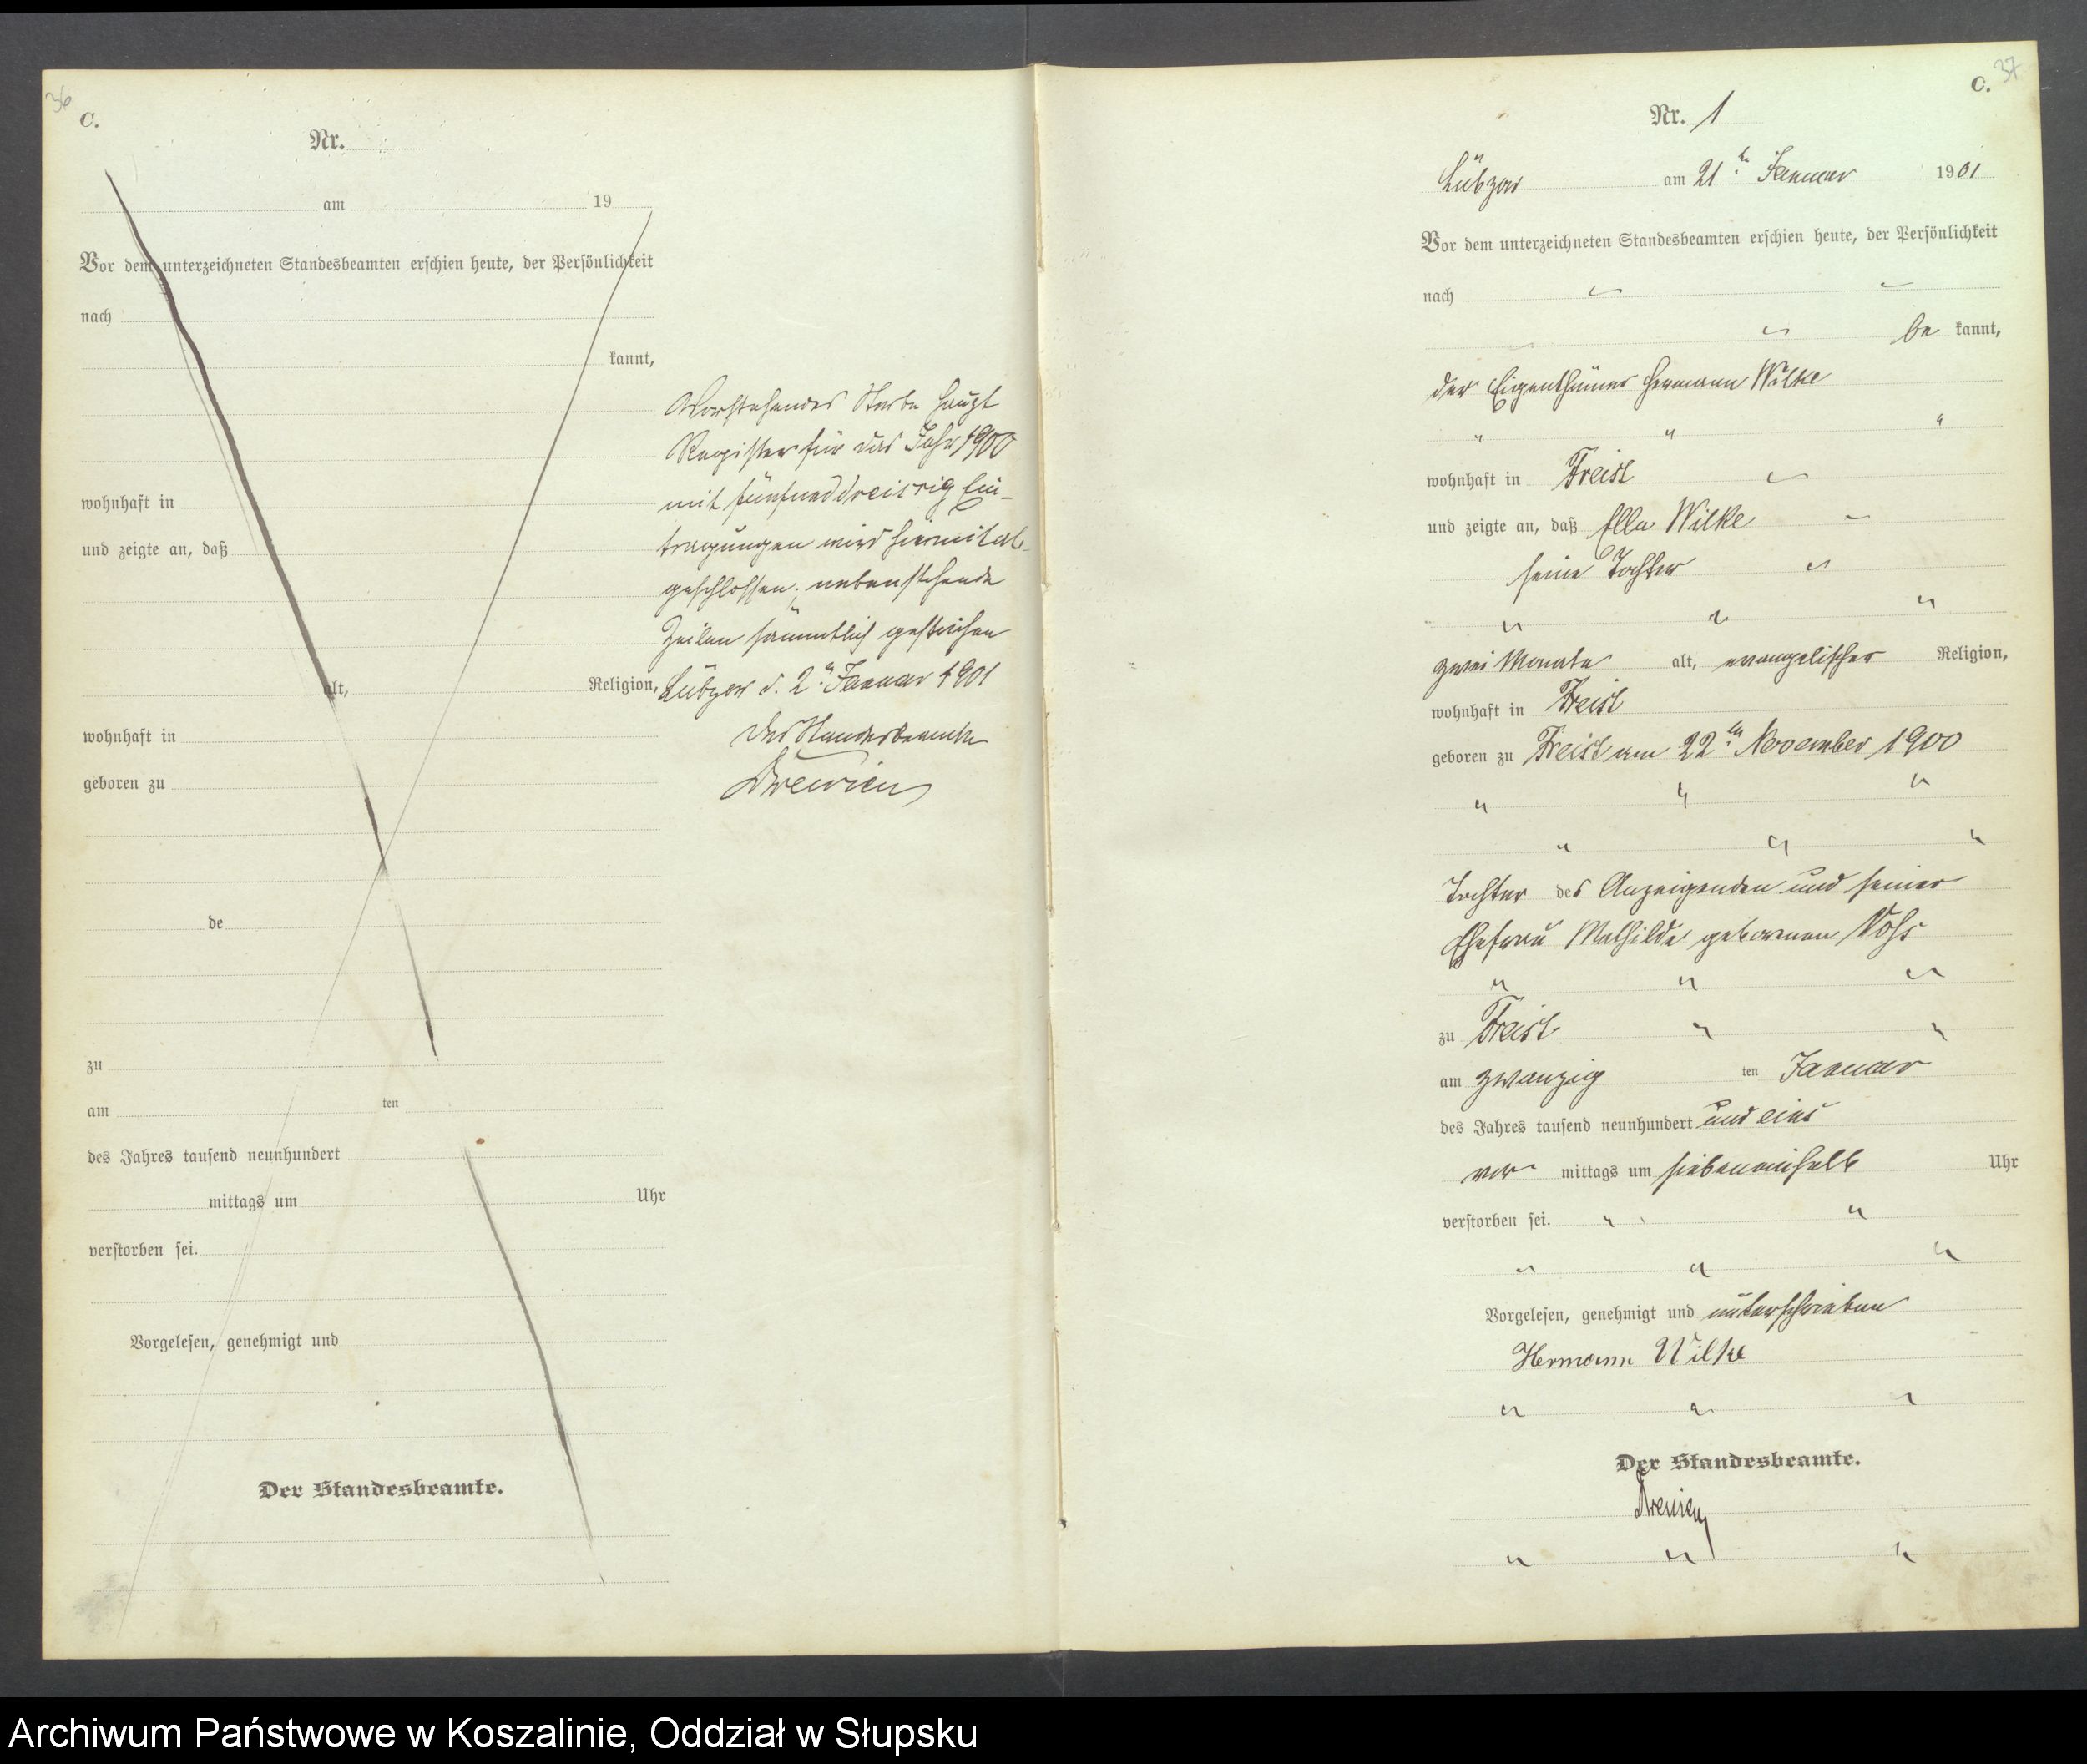 36
C.
Nr.
am 19
Vor dem unterzeichneten Standesbeamten erschien heute, der Persönlichkeit
nach
kannt,
wohnhaft in
und zeigte an, daß
alt, Religion,
wohnhaft in
geboren zu
de
zu
am ten
des Jahres tausend neunhundert
mittags um Uhr
verstorben sei.
Vorgelesen, genehmigt und
Der Standesbeamte.
Vorstehendes Sterbe Haupt
Register für das Jahr 1900
mit fünfunddreissig Ein-
tragungen wird hiermit ab-
geschlossen; nebenstehende
Zeilen sämmtlich gestrichen
Lübzow d. 2ten Januar 1901
Der Standesbeamte
Drewien
37
C.
Nr. 1
Lübzow am 21ten Januar 1901
Vor dem unterzeichneten Standesbeamten erschien heute, der Persönlichkeit
nach
be kannt,
der Eigenthümer Hermann Wilke
wohnhaft in Freist
und zeigte an, daß Ella Wilke
seine Tochter
zwei Monate alt, evangelischer Religion,
wohnhaft in Freist
geboren zu Freist am 22ten November 1900
Tochter des Anzeigenden und seiner
Ehefrau Mathilde gebornen Voß
zu Freist
am zwanzig ten Januar
des Jahres tausend neunhundert und eins
vor mittags um siebeneinhalb Uhr
verstorben sei.
Vorgelesen, genehmigt und unterschrieben
Hermann Wilke
Der Standesbeamte.
Drewien
Archiwum Państwowe w Koszalinie, Oddział w Słupsku